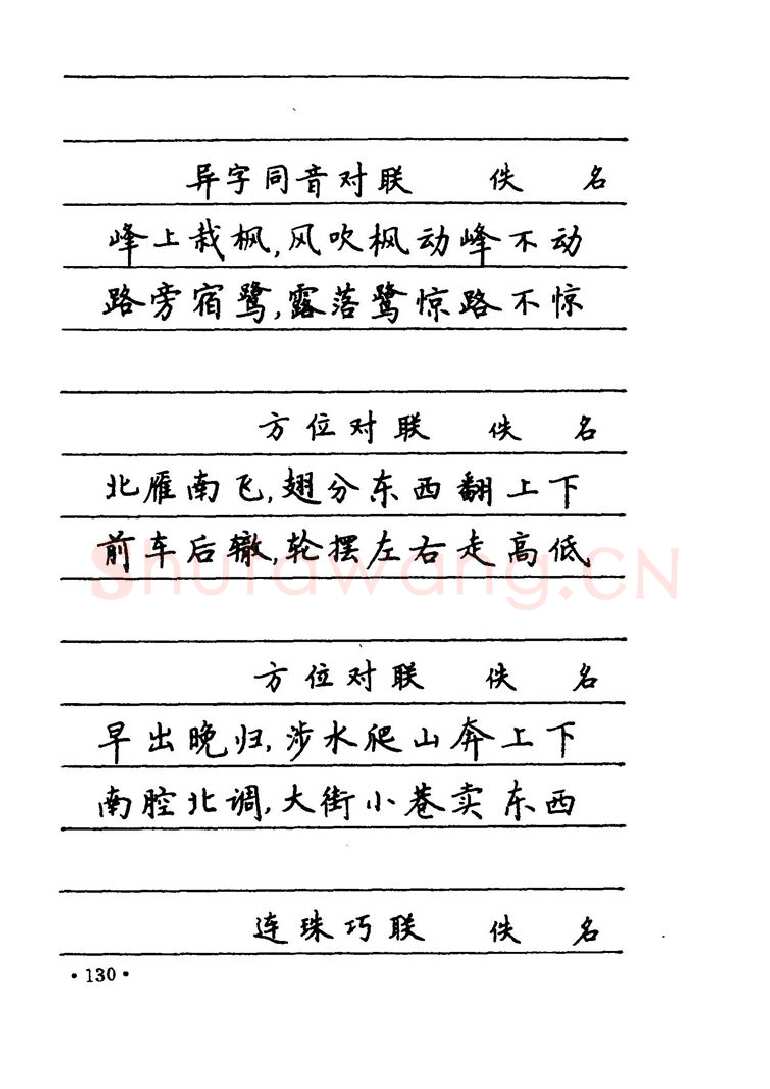 异字同音对联 佚 名
峰上栽枫,风吹枫动峰不动
路旁宿鹭,露落鹭惊路不惊
方位对联 佚 名
北雁南飞,翅分东西翻上下
前车后辙,轮摆左右走高低
shufawang.CN
方位对联 佚 名
早出晚归,涉水爬山奔上下
南腔北调,大街小巷卖东西
连珠巧联 佚 名
·130·